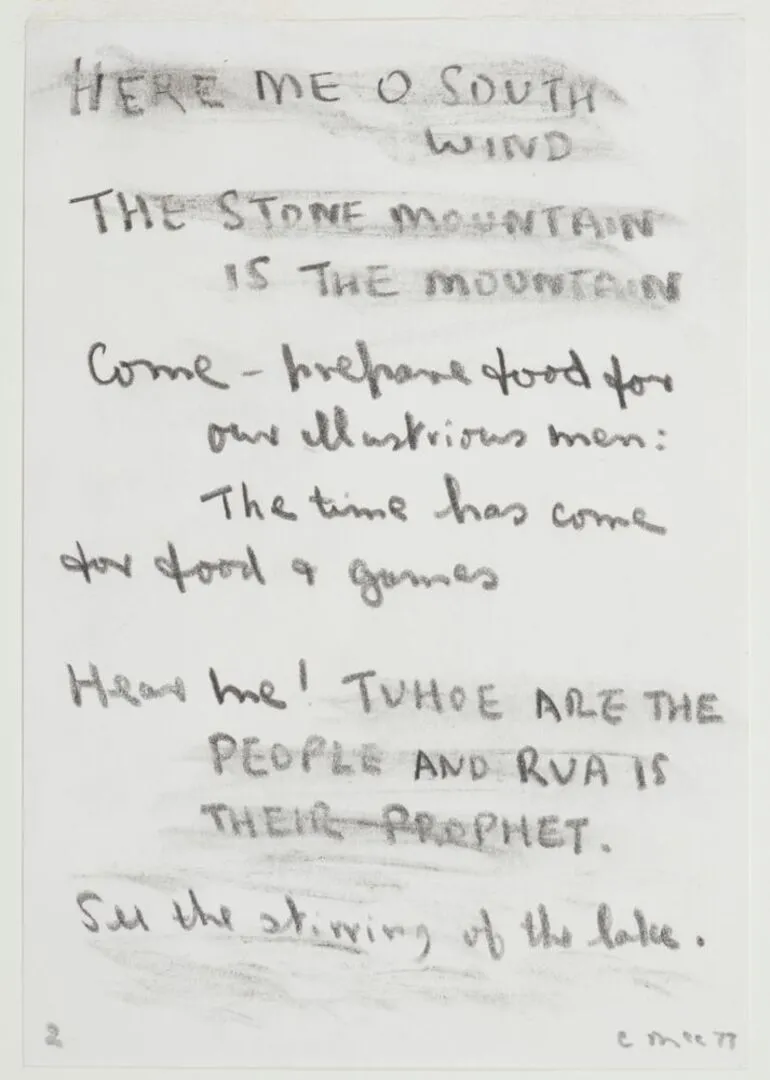 HERE ME O SOUTH
WIND
THE STONE MOUNTAIN
IS THE MOUNTAIN
Come – prepare food for
our illustrious men:
The time has come
for food & games
Hear me! TUHOE ARE THE
PEOPLE AND RUA IS
THEIR PROPHET.
See the stirring of the lake.
2
C McC 77